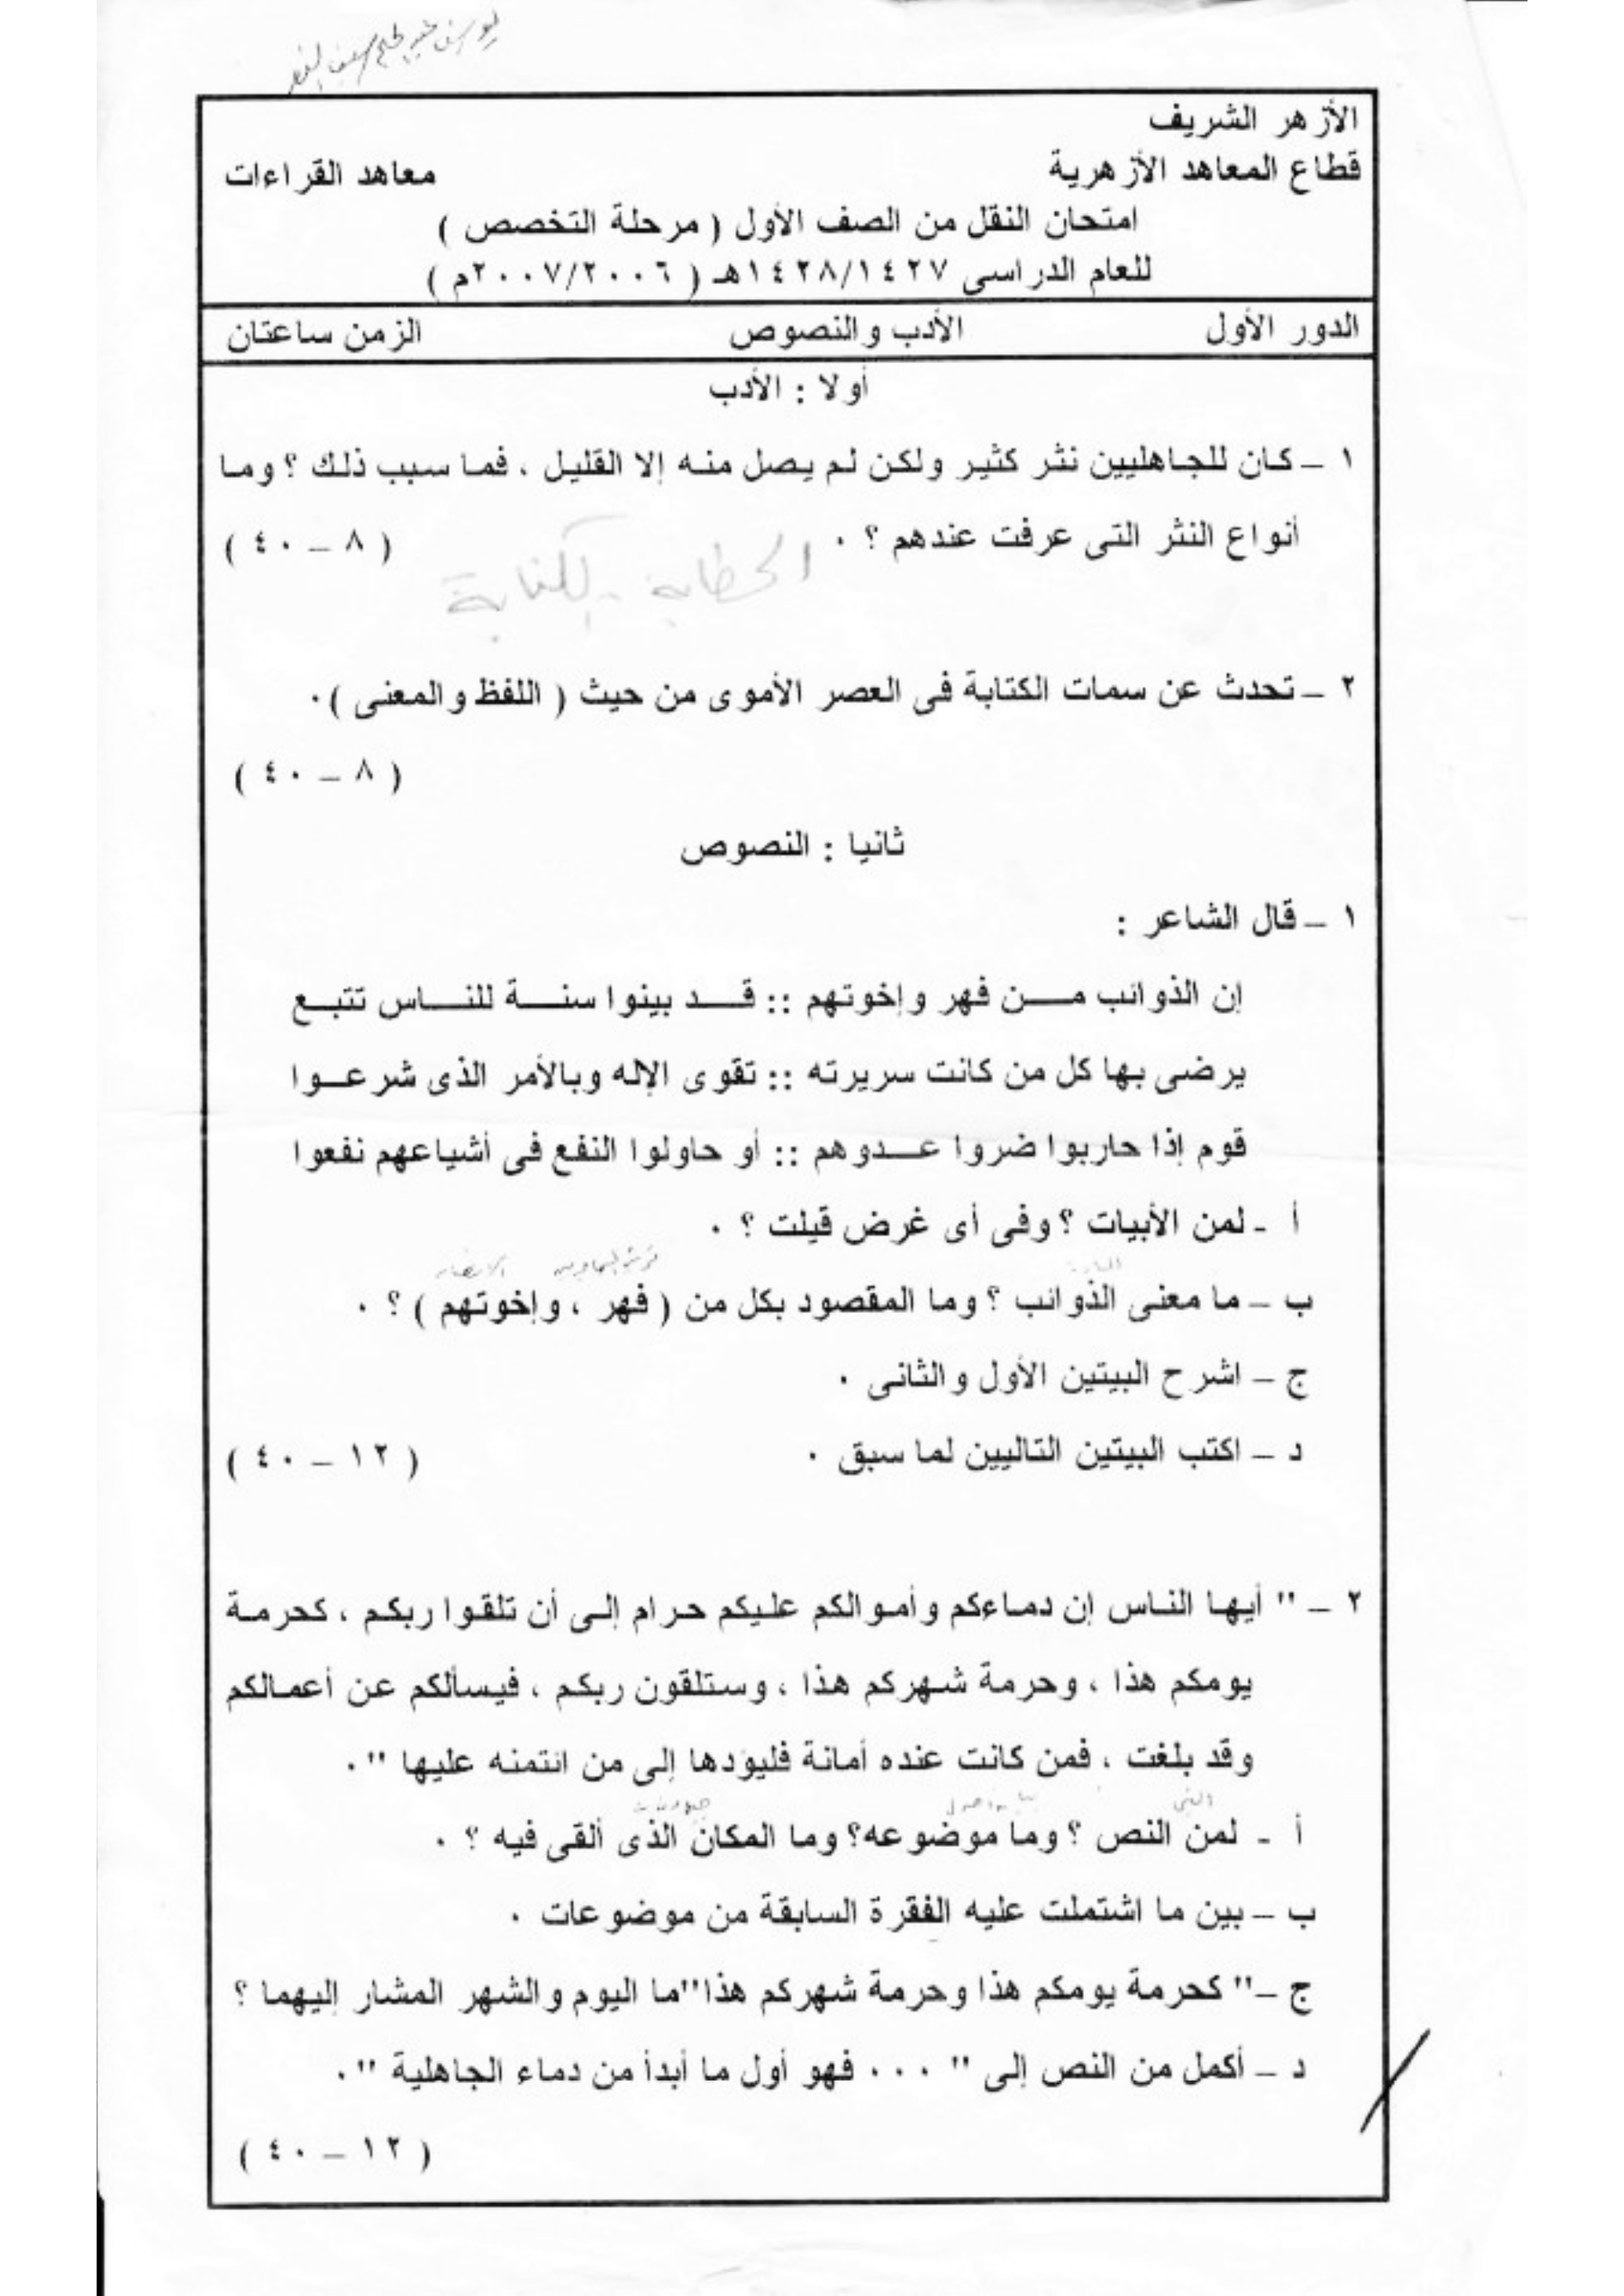 الأزهر الشريف
قطاع المعاهد الأزهرية معاهد القراءات
امتحان النقل من الصف الأول ( مرحلة التخصص )
للعام الدراسى ١٤٢٨/١٤٢٧هـ ( ٢٠٠٧/٢٠٠٦م )
الدور الأول الأدب والنصوص الزمن ساعتان
أولا : الأدب
١ – كان للجاهليين نثر كثير ولكن لم يصل منه إلا القليل ، فما سبب ذلك ؟ وما
أنواع النثر التى عرفت عندهم ؟ . ( ٨ – ٤٠ )
الخطابة - الكتابة
٢ – تحدث عن سمات الكتابة فى العصر الأموى من حيث ( اللفظ والمعنى ) .
( ٨ – ٤٠ )
ثانيا : النصوص
١ – قال الشاعر :
إن الذوائب من فهر وإخوتهم :: قد بينوا سنة للناس تتبع
يرضى بها كل من كانت سريرته :: تقوى الإله وبالأمر الذى شرعوا
قوم إذا حاربوا ضروا عدوهم :: أو حاولوا النفع فى أشياعهم نفعوا
أ - لمن الأبيات ؟ وفى أى غرض قيلت ؟ .
ب – ما معنى الذوائب ؟ وما المقصود بكل من ( فهر ، وإخوتهم ) ؟ .
ج – اشرح البيتين الأول والثانى .
د – اكتب البيتين التاليين لما سبق . ( ١٢ – ٤٠ )
٢ – " أيها الناس إن دماءكم وأموالكم عليكم حرام إلى أن تلقوا ربكم ، كحرمة
يومكم هذا ، وحرمة شهركم هذا ، وستلقون ربكم ، فيسألكم عن أعمالكم
وقد بلغت ، فمن كانت عنده أمانة فليؤدها إلى من ائتمنه عليها " .
النبى
أ - لمن النص ؟ وما موضوعه؟ وما المكان الذى ألقى فيه ؟ .
ب – بين ما اشتملت عليه الفقرة السابقة من موضوعات .
ج –" كحرمة يومكم هذا وحرمة شهركم هذا"ما اليوم والشهر المشار إليهما ؟
د – أكمل من النص إلى " ... فهو أول ما أبدأ من دماء الجاهلية " .
( ١٢ – ٤٠ )